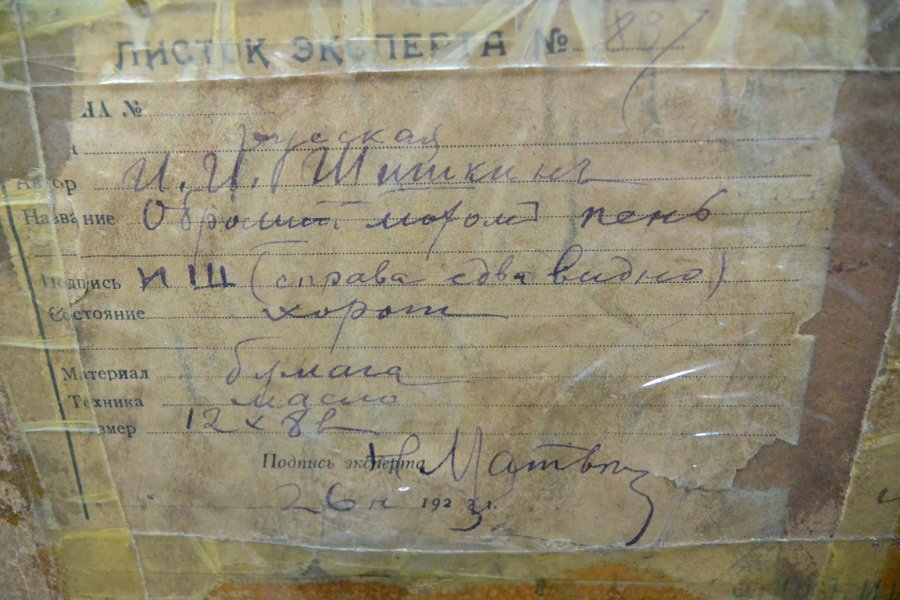 ЛИСТОК ЭКСПЕРТА № 83
ЛА №
Русская
Автор И. И. Шишкинъ
Название Обросший мохом пень
Подпись И Ш (справа едва видно)
Состояние хорош
Материал бумага
Техника масло
змер 12 x 8 в
Подпись эксперта
26 192 г.